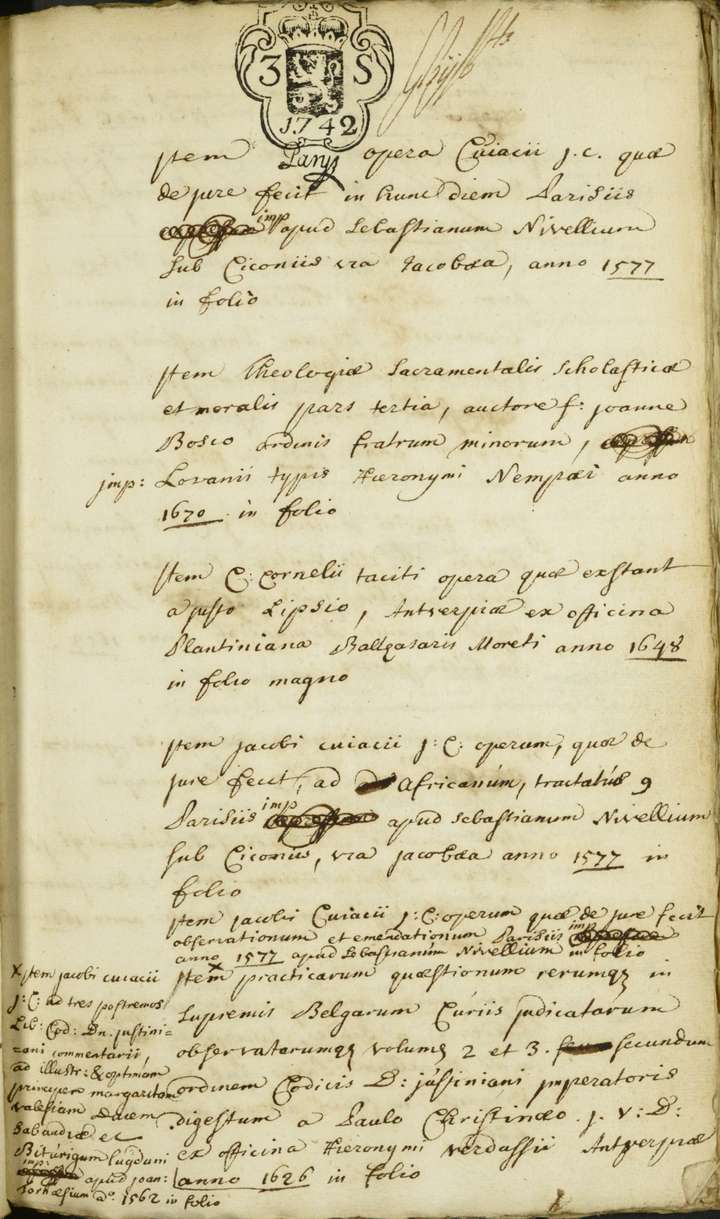 3 S
1742
Item Pars opera Cuiacii J. C. quæ
de jure fecit in hunc diem Parisiis
imp apud Sebastianum Nivellium
sub Ciconiis via Jacobæa, anno 1577
in folio
Item Theologiæ Sacramentalis Scholasticæ
et moralis pars tertia, auctore f: joanne
Bosco ordinis fratrum minorum,
imp: Lovanii typis Hieronymi Nempæi anno
1670 in folio
Item C: Cornelii taciti opera quæ exstant
a justo Lipsio, Antverpiæ ex officina
Plantiniana Baltzasaris Moreti anno 1648
in folio magno
Item jacobi cuiacii J: C: operum, quæ de
jure fecit, ad Africanum, tractatus 9
Parisiis imp apud sebastianum Nivellium
sub Ciconiis, via jacobæa anno 1577 in
folio
Item jacobi Cuiacii J: C: operum quæ de jure fecit
observationum et emendationum Parisiis imp
anno 1577 apud Sebastianum Nivellium in folio
X Item jacobi cuiacii
J: C: ad tres postremos
Lib: Cod: Dn. justini-
ani commentarii,
ad illustr: & optimam
principem margaritam
valesiam Ducem
Sabaudiæ et
Biturigum Lugduni
imp: apud joan:
Tornæsium aº. 1562 in folio
Item X practicarum quæstionum rerumqz in
supremis Belgarum Curiis judicatarum
observatarumqz volumz 2 et 3. secundum
ordinem Codicis D: justiniani imperatoris
digestum a Paulo Christinæo. J. V: D:
ex officina Hieronymi verdussii Antverpiæ
anno 1626 in folio